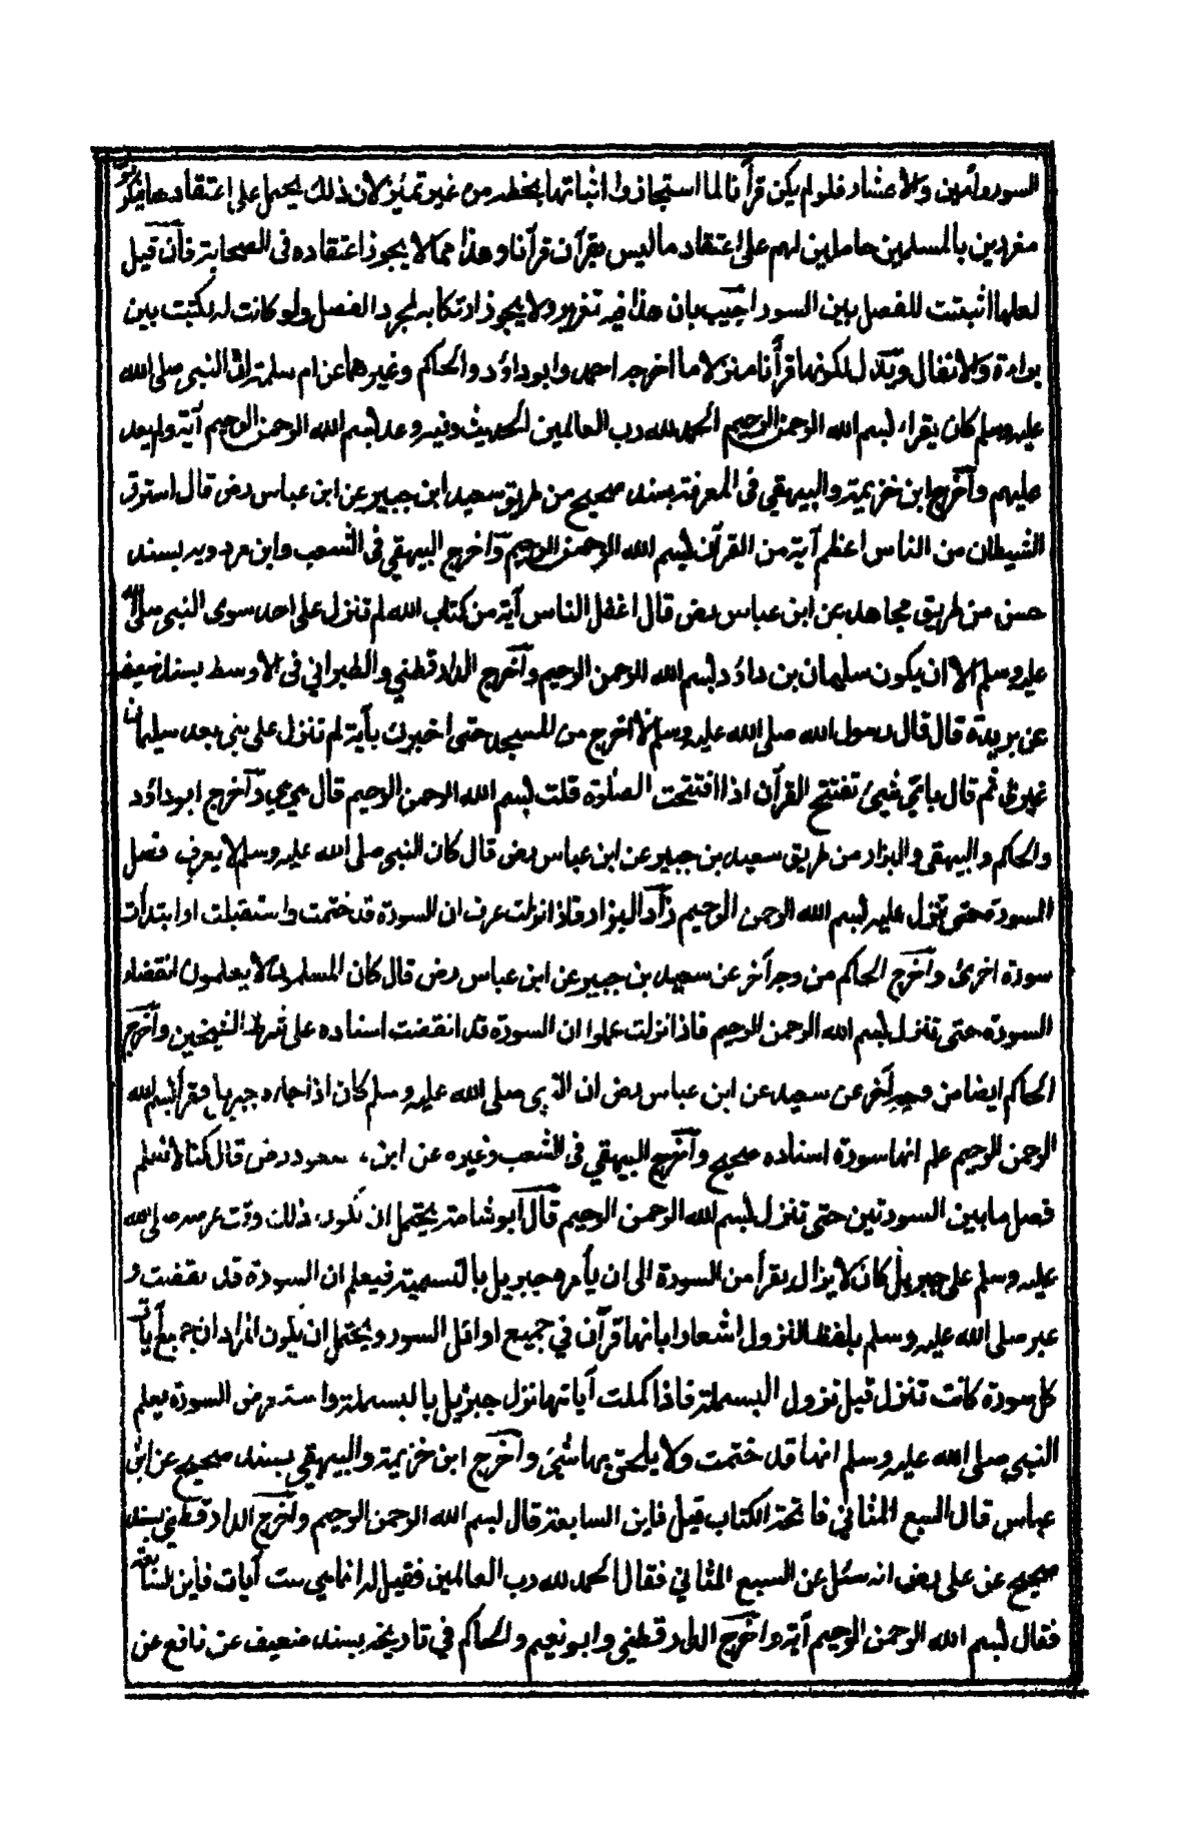 السور وآمين والأعشار فلو لم يكن قرآنا لما استجازوا اثباتها بخطه من غير تميز لان ذلك يحمل على اعتقادها فيكونوا
مغررين بالمسلمين حاملين لهم على اعتقاد ما ليس بقرآن قرآنا وهذا مما لا يجوز اعتقاده فى الصحابة فان قيل
لعلها اثبتت للفصل بين السور اجيب بان هذا فيه تغرير ولا يجوز ارتكابه لمجرد الفصل ولو كانت له لكتبت بين
براءة والانفال ويدل لكونها قرآنا منزلا ما اخرجه احمد وابو داؤد والحاكم وغيرهما عن ام سلمة ان النبى صلى الله
عليه وسلم كان يقراء بسم الله الرحمن الرحيم الحمد لله رب العالمين الحديث وفيه وعد بسم الله الرحمن الرحيم آية ولم يعد
عليهم وآخرج ابن خزيمة والبيهقي فى المعرفة بسند صحيح من طريق سعيد ابن جبير عن ابن عباس رض قال استرق
الشيطان من الناس اعظم آية من القرآن بسم الله الرحمن الرحيم وآخرج البيهقي فى الشعب وابن مردويه بسند
حسن من طريق مجاهد عن ابن عباس رض قال اغفل الناس آية من كتاب الله لم تنزل على احد سوى النبى صلى الله
عليه وسلم الا ان يكون سليمان بن داؤد بسم الله الرحمن الرحيم وآخرج الدارقطني والطبراني فى الاوسط بسند ضعيف
عن بريدة قال قال رسول الله صلى الله عليه وسلم لا اخرج من المسجد حتى اخبرك بآية لم تنزل على نبى بعد سليمان
غيري ثم قال باتي شيئ تفتتح القرآن اذا افتتحت الصلوة قلت بسم الله الرحمن الرحيم قال هي هي وآخرج ابو داؤد
والحاكم والبيهقى والبزار من طريق سعيد بن جبير عن ابن عباس رض قال كان النبى صلى الله عليه وسلم لا يعرف فصل
السورة حتى تنزل عليه بسم الله الرحمن الرحيم زاد البزار فاذا نزلت عرف ان السورة قد ختمت واستقبلت او ابتدأت
سورة اخرى وآخرج الحاكم من وجه آخر عن سعيد بن جبير عن ابن عباس رض قال كان المسلمون لا يعلمون انقضاء
السورة حتى تنزل بسم الله الرحمن الرحيم فاذا نزلت علموا ان السورة قد انقضت اسناده على شرط الشيخين وآخرج
الحاكم ايضا من وجه آخر عن سعيد عن ابن عباس رض ان النبى صلى الله عليه وسلم كان اذا جاءه جبريل فقرأ بسم الله
الرحمن الرحيم علم انها سورة اسناده صحيح وآخرج البيهقي فى الشعب وغيره عن ابن مسعود رض قال كنا لا نعلم
فصل ما بين السورتين حتى تنزل بسم الله الرحمن الرحيم قال ابو شامة يحتمل ان يكون ذلك وقت عرضه صلى الله
عليه وسلم على جبريل كان لا يزال يقرأ من السورة الى ان يأمره جبريل بالتسمية فيعلم ان السورة قد نقضت و
عبر صلى الله عليه وسلم بلفظ النزول اشعارا بانها قرآن في جميع اوائل السور ويحتمل ان يكون المراد ان جميع آيات
كل سورة كانت تنزل قبل نزول البسملة فاذا كملت آياتها نزل جبرئيل بالبسملة واستعرض السورة فيعلم
النبى صلى الله عليه وسلم انها قد ختمت ولا يلحق بها شئ وآخرج ابن خزيمة والبيهقي بسند صحيح عن ابن
عباس قال السبع المثاني فاتحة الكتاب قيل فاين السابعة قال بسم الله الرحمن الرحيم وآخرج الدارقطني بسند
صحيح عن على رض انه سئل عن السبع المثاني فقال الحمد لله رب العالمين فقيل له انما هي ست آيات فاين السابعة
فقال بسم الله الرحمن الرحيم آية وآخرج الدارقطني وابو نعيم والحاكم في تاريخه بسند ضعيف عن نافع عن